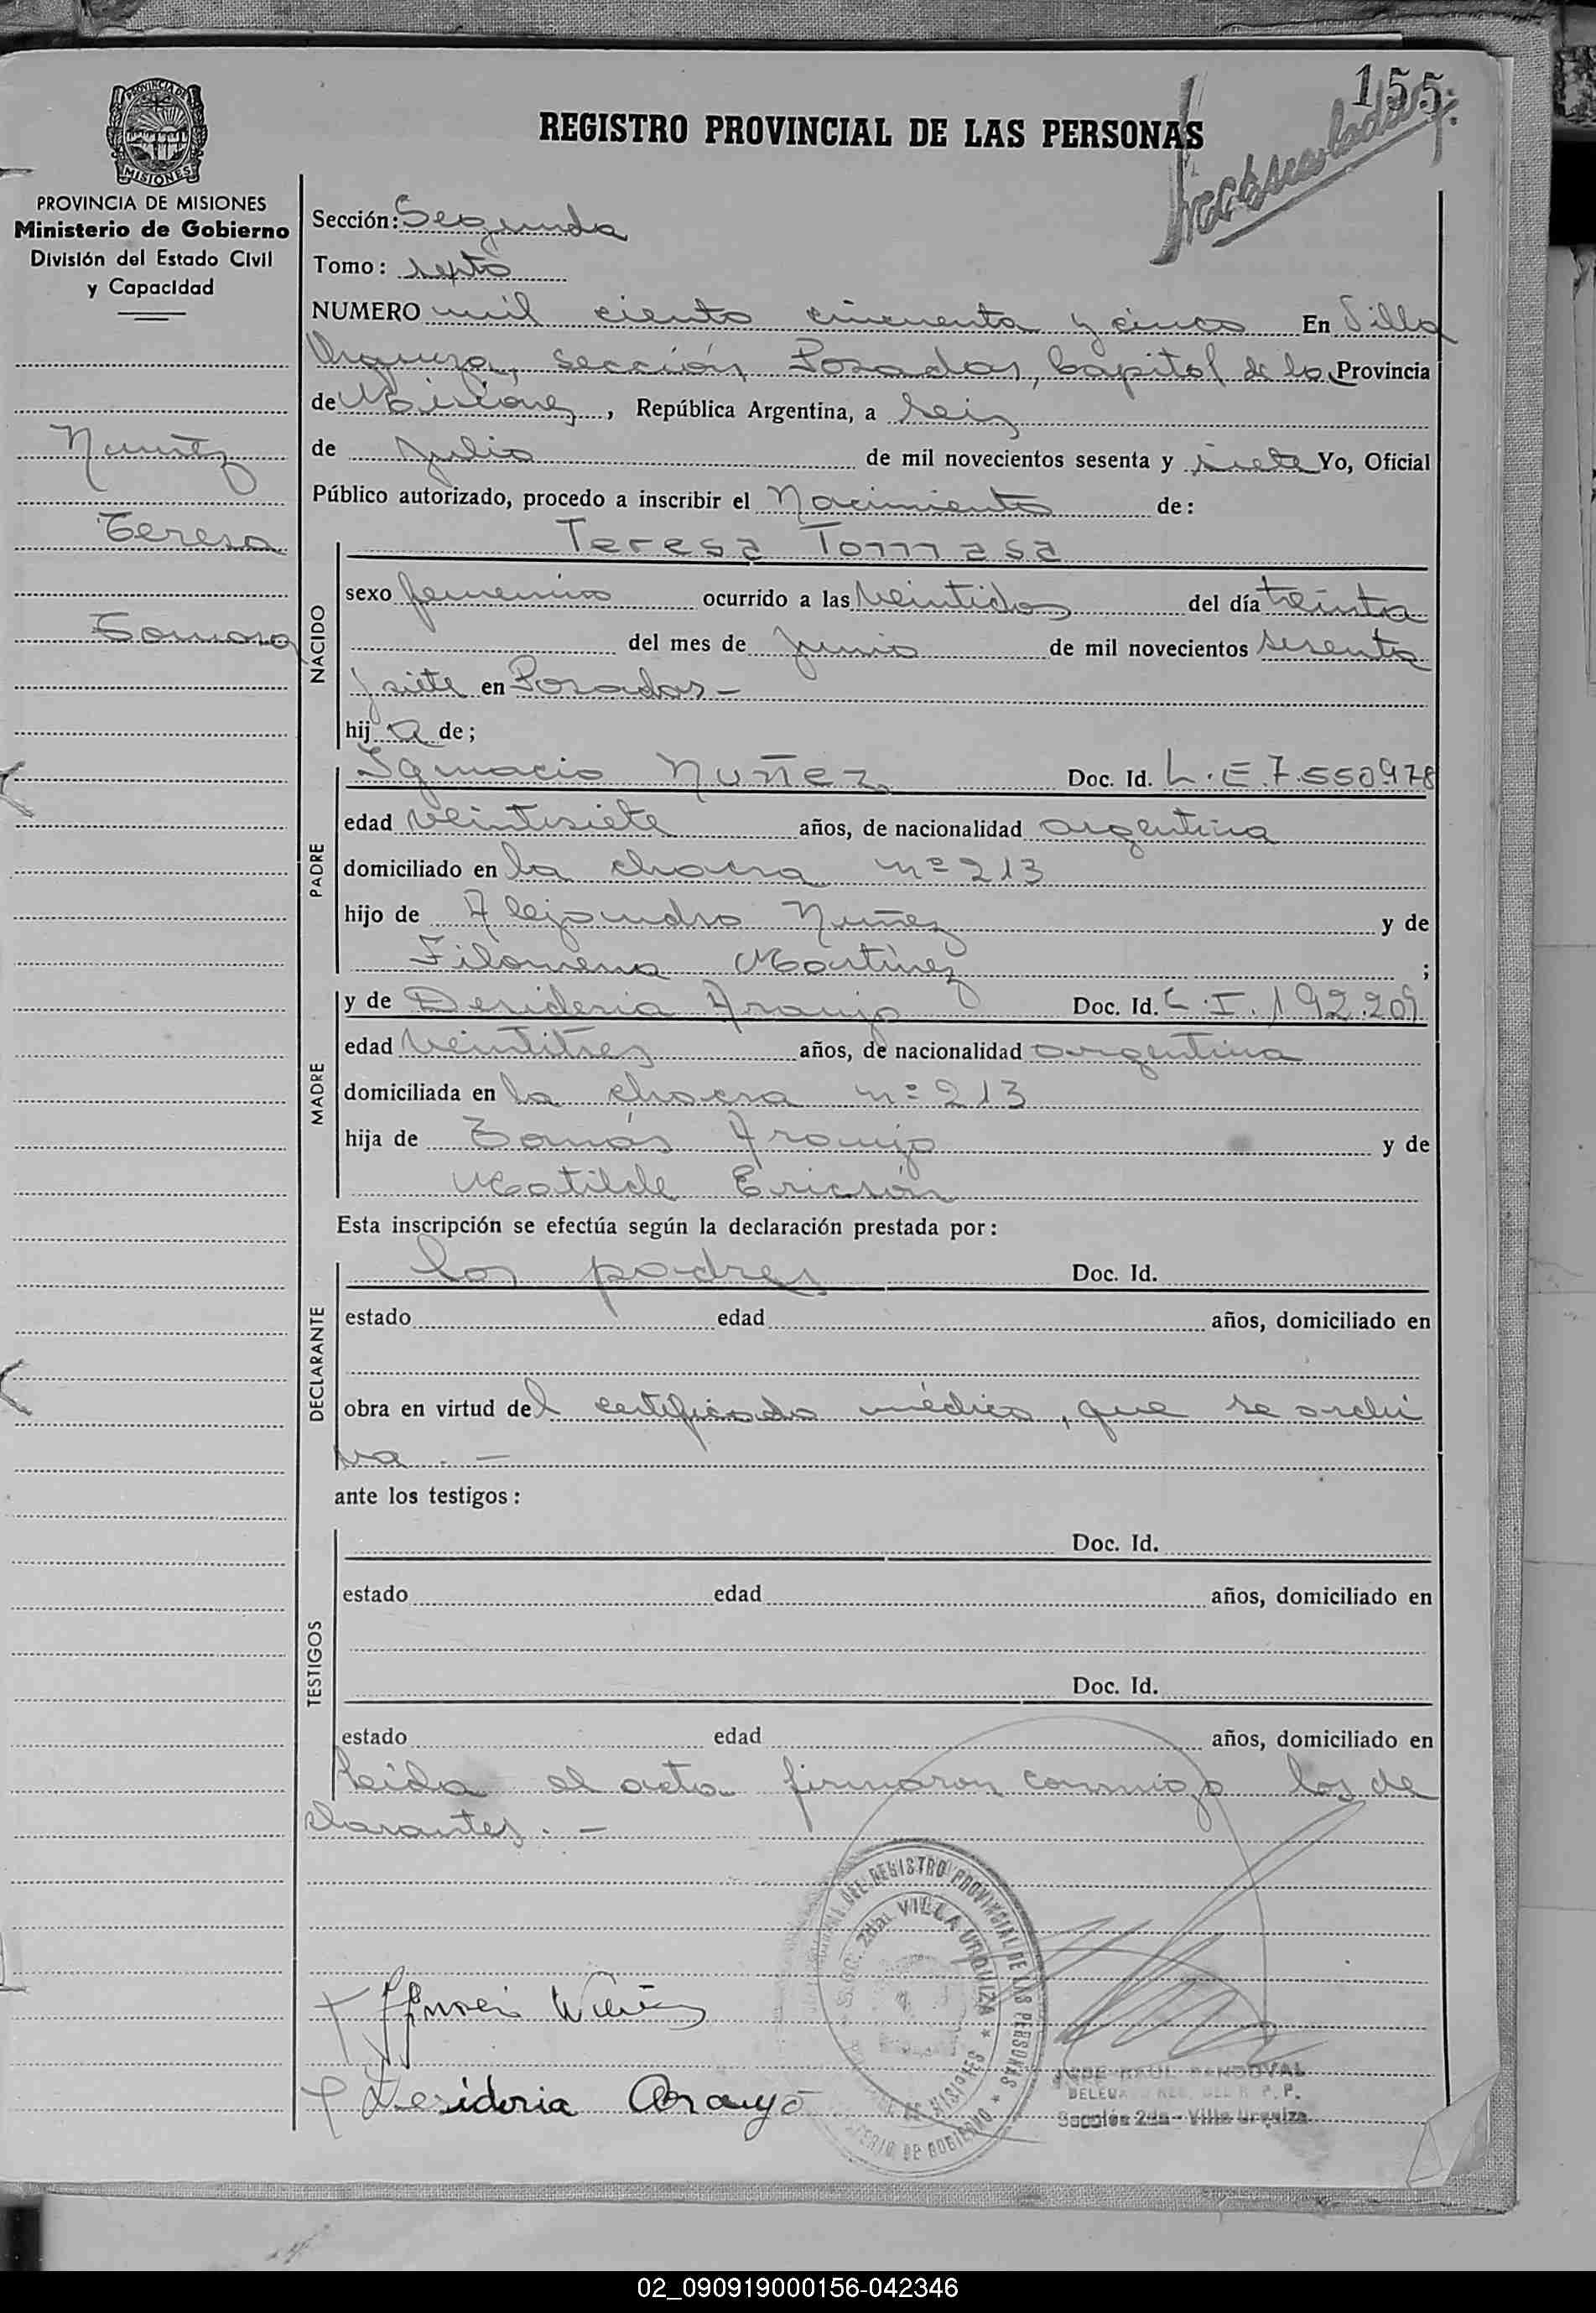 155
REGISTRO PROVINCIAL DE LAS PERSONAS
PROVINCIA DE
MISIONES
PROVINCIA DE MISIONES
Ministerio de Gobierno
División del Estado Civil
y Capacidad
Nuñez
Teresa
Tomasa
Sección: Segunda
Tomo: septo
NUMERO mil ciento cincuenta y cinco En Villa
Urquiza, sección Posadas, Capital de la Provincia
de Misiones, República Argentina, a seis
de Julio de mil novecientos sesenta y siete Yo, Oficial
Público autorizado, procedo a inscribir el Nacimiento de:
NACIDO
Teresa Tomasa
sexo femenino ocurrido a las veintidos del día treinta
del mes de junio de mil novecientos sesenta
y siete en Posadas-
hija de;
PADRE
Ignacio Nuñez Doc. Id. L.E.7.550978
edad veintisiete años, de nacionalidad argentina
domiciliado en la chacra nº 213
hijo de Alejandro Nuñez y de
Filomena Martinez ;
MADRE
y de Desideria Araujo Doc. Id. C.I. 192.209
edad veintitres años, de nacionalidad argentina
domiciliada en la chacra nº 213
hija de Tomás Araujo y de
Matilde Ericsón
Esta inscripción se efectúa según la declaración prestada por:
DECLARANTE
los padres Doc. Id.
estado edad años, domiciliado en
obra en virtud del certificado médico, que se archi
va. -
ante los testigos:
TESTIGOS
Doc. Id.
estado edad años, domiciliado en
Doc. Id.
estado edad años, domiciliado en
leida el acta firmaron conmigo los de
clarantes. -
DEL REGISTRO PROVINCIAL DE LAS PERSONAS
Secc. 2da. VILLA URQUIZA
MISIONES
MINISTERIO DE GOBIERNO
Desideria Araujo
JOSE RAUL SANDOVAL
Sección 2da - Villa Urquiza
02_090919000156-042346